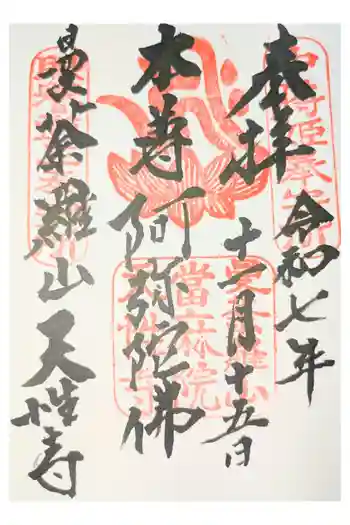 奉拝
令和七年
十一月十五日
本尊 阿弥陀佛
曼荼羅山 天性寺
當麻院